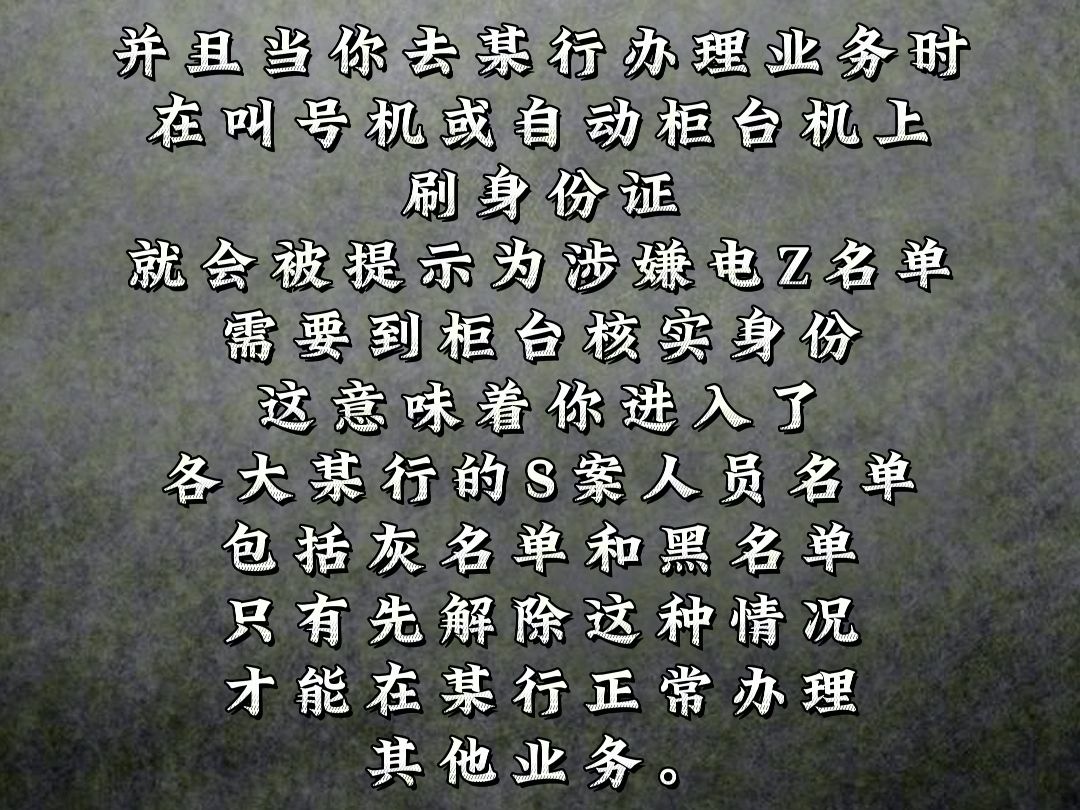 并且当你去某行办理业务时
在叫号机或自动柜台机上
刷身份证
就会被提示为涉嫌电Z名单
需要到柜台核实身份
这意味着你进入了
各大某行的S案人员名单
包括灰名单和黑名单
只有先解除这种情况
才能在某行正常办理
其他业务。